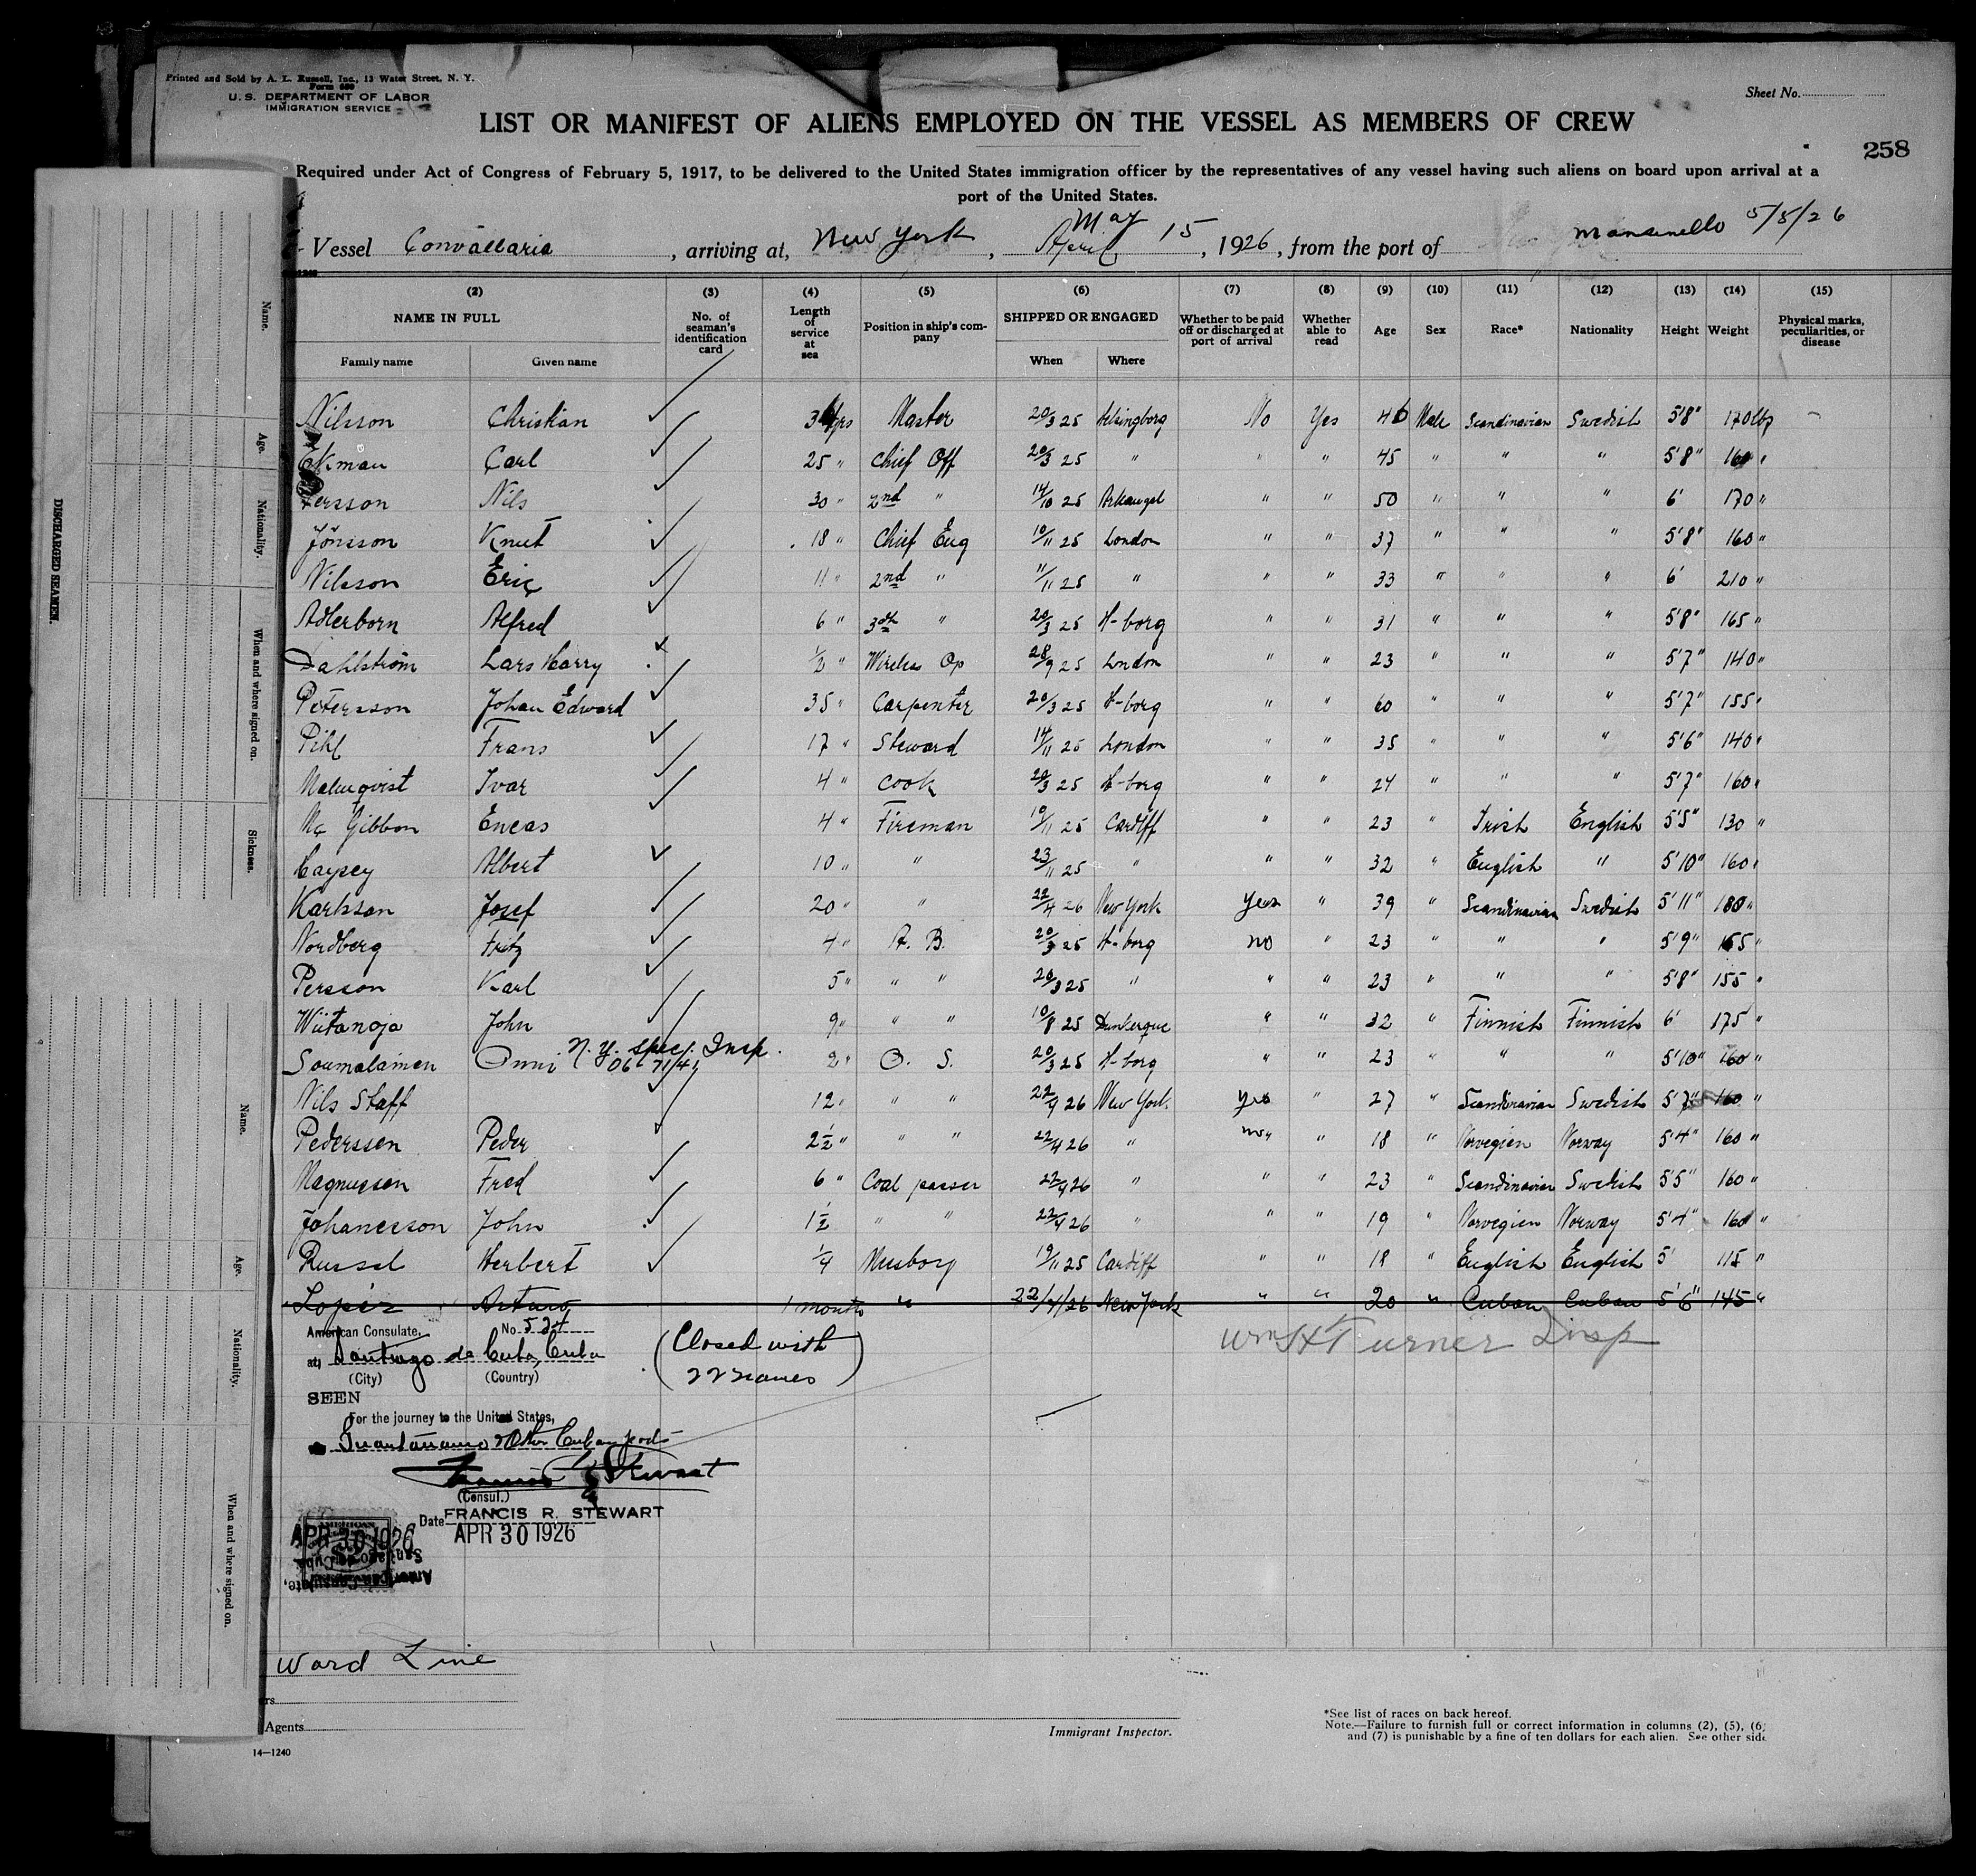 Printed and Sold by A. L. Russell, Inc., 13 Water Street, N. Y.
Form 680
U. S. DEPARTMENT OF LABOR
IMMIGRATION SERVICE
Sheet No.
LIST OR MANIFEST OF ALIENS EMPLOYED ON THE VESSEL AS MEMBERS OF CREW
258
Required under Act of Congress of February 5, 1917, to be delivered to the United States immigration officer by the representatives of any vessel having such aliens on board upon arrival at a
port of the United States.
Vessel Convallaria, arriving at, New York, April May 15, 1926, from the port of Manzanello 5/5/26
(2) (3) (4) (5) (6) (7) (8) (9) (10) (11) (12) (13) (14) (15)
NAME IN FULL Family name Given name No. of seaman's identification card Length of service at sea Position in ship's company SHIPPED OR ENGAGED When Where Whether to be paid off or discharged at port of arrival Whether able to read Age Sex Race* Nationality Height Weight Physical marks, peculiarities, or disease
Nilsson Christian yrs Master 20/3 25 Helsingborg No Yes 46 Male Scandinavian Swedish 5'8" 170 lbs
Ekman Carl 25 " Chief Off 20/3 25 " " " 45 " " " 5'8" 160 "
Persson Nils 30 " 2nd " 14/10 25 Arkangel " " 50 " " " 6' 170 "
Jönsson Knut 18 " Chief Eng 10/11 25 London " " 37 " " " 5'8" 160 "
Nilsson Eric 11 " 2nd " 11/11 25 " " " 33 " " " 6' 210 "
Adlerborn Alfred 6 " 3rd " 20/3 25 H-borg " " 31 " " " 5'8" 165 "
Dahlström Lars Harry 1/2 " Wireless Op 28/9 25 London " " 23 " " " 5'7" 140 "
Petersson Johan Edward 35 " Carpenter 20/3 25 H-borg " " 60 " " " 5'7" 155 "
Pihl Frans 17 " Steward 14/11 25 London " " 35 " " " 5'6" 140 "
Malmqvist Ivar 4 " Cook 20/3 25 H-borg " " 24 " " " 5'7" 160 "
Mc Gibbon Eneas 4 " Fireman 19/11 25 Cardiff " " 23 " Irish English 5'5" 130 "
Caysey Albert 10 " " 23/11 25 " " " 32 " English " 5'10" 160 "
Karlsson Josef 20 " " 22/4 26 New York Yes " 39 " Scandinavian Swedish 5'11" 180 "
Nordberg Fritz 4 " A. B. 20/3 25 H-borg no " 23 " " " 5'9" 155 "
Persson Karl 5 " " " 20/3 25 " " " 23 " " " 5'8" 155 "
Wiitanoja John 9 " " " 10/8 25 Dunkerque " " 32 " Finnish Finnish 6' 175 "
N. Y. spec. Insp.
Soumalainen Onni 2 " O. S. 20/3 25 H-borg " " 23 " " " 5'10" 160 "
Nils Staff 12 " " " 22/4 26 New York yes " 27 " Scandinavian Swedish 5'7" 160 "
Pederssen Peder 2 1/2 " " " 22/4 26 " no " 18 " Norvegien Norway 5'4" 160 "
Magnussen Fred 6 " Coal passer 22/4 26 " " " 23 " Scandinavian Swedish 5'5" 160 "
Johanesson John 1 1/2 " " 22/4 26 " " " 19 " Norvegien Norway 5'4" 160 "
Russel Herbert 1/4 Messboy 19/11 25 Cardiff " " 18 " English English 5' 115 "
Lopez Arturo 1 month " 22/4/26 New York " " 20 " Cuban Cuban 5'6" 145 "
American Consulate, No 524
at Santiago de Cuba, Cuba
(City) (Country)
(Closed with
22 names)
Wm H Turner Insp
SEEN
For the journey to the United States,
Guantanamo & Other Cuban ports
Francis R Stewart
(Consul.)
FRANCIS R. STEWART
Date APR 30 1926
APR 30 1926
AMERICAN
American Consulate,
Santiago de Cuba
Ward Line
rs
Agents
Immigrant Inspector.
*See list of races on back hereof.
Note.—Failure to furnish full or correct information in columns (2), (5), (6)
and (7) is punishable by a fine of ten dollars for each alien. See other side
14—1240
DISCHARGED SEAMEN.
Name.
Age.
Nationality.
When and where signed on.
Sickness.
Name.
Age.
Nationality.
When and where signed on.